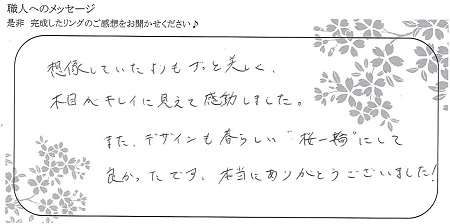 職人へのメッセージ
是非 完成したリングのご感想をお聞かせください♪
想像していたよりもずっと美しく、
木目がキレイに見えて感動しました。
また、デザインも春らしい“桜一輪”にして
良かったです。本当にありがとうございました!